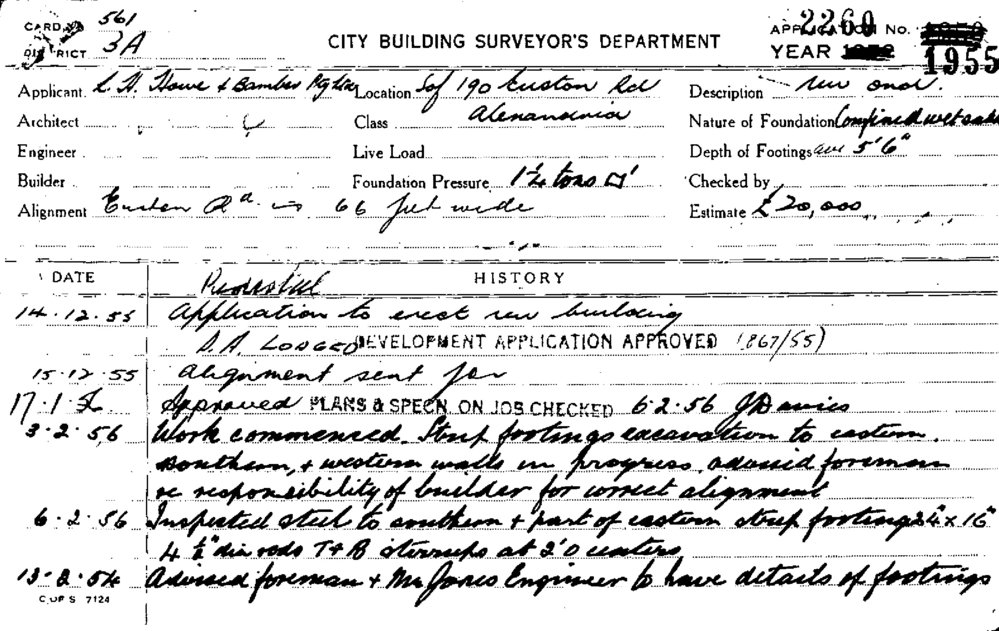 CARD No 561
DISTRICT 3A
CITY BUILDING SURVEYOR'S DEPARTMENT
APPLICATION No. 2260
YEAR 1955
Applicant L. H. Howe & Bamber Pty Ltd Location Sof 190 Euston Rd Description new
Architect Class Alexandria Nature of Foundation Confined wet sand
Engineer Live Load Depth of Footings ave 5'6"
Builder Foundation Pressure 1¼ tons □' Checked by
Alignment Euston Rd. is 66 feet wide Estimate £20,000
DATE HISTORY
14.12.55 Application to erect new building
D.A. LODGED DEVELOPMENT APPLICATION APPROVED (867/55)
15.12.55 alignment sent for
17.1.56 Approved PLANS & SPECN. ON JOB CHECKED 6.2.56 J Davies
3.2.56 Work commenced. Strip footings excavation to eastern,
southern, & western walls in progress, advised foreman
re responsibility of builder for correct alignment
6.2.56 Inspected steel to southern & part of eastern strip footings 24" x 16"
4 ½" dia rods T & B stirrups at 2'0 centers
13.2.56 Advised foreman & Mr Jones Engineer to have details of footings
C OF S 7124